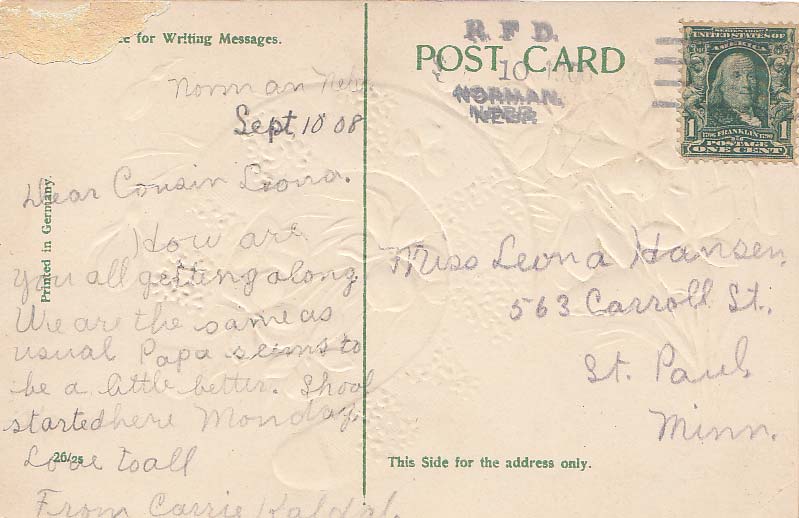 for Writing Messages.
Norman Nebr.
Sept 10 08
Dear Cousin Leona.
How are
you all getting along.
We are the same as
usual Papa seems to
be a little better. Shool
started here Monday.
Love to all
From Carrie
Printed in Germany.
26/25
R. F. D.
POST CARD
10
NORMAN,
NEBR.
SERIES 1902
UNITED STATES OF
AMERICA
1 FRANKLIN 1
POSTAGE
ONE CENT
Miss Leona Hansen,
563 Carroll St.,
St. Paul
Minn.
This Side for the address only.